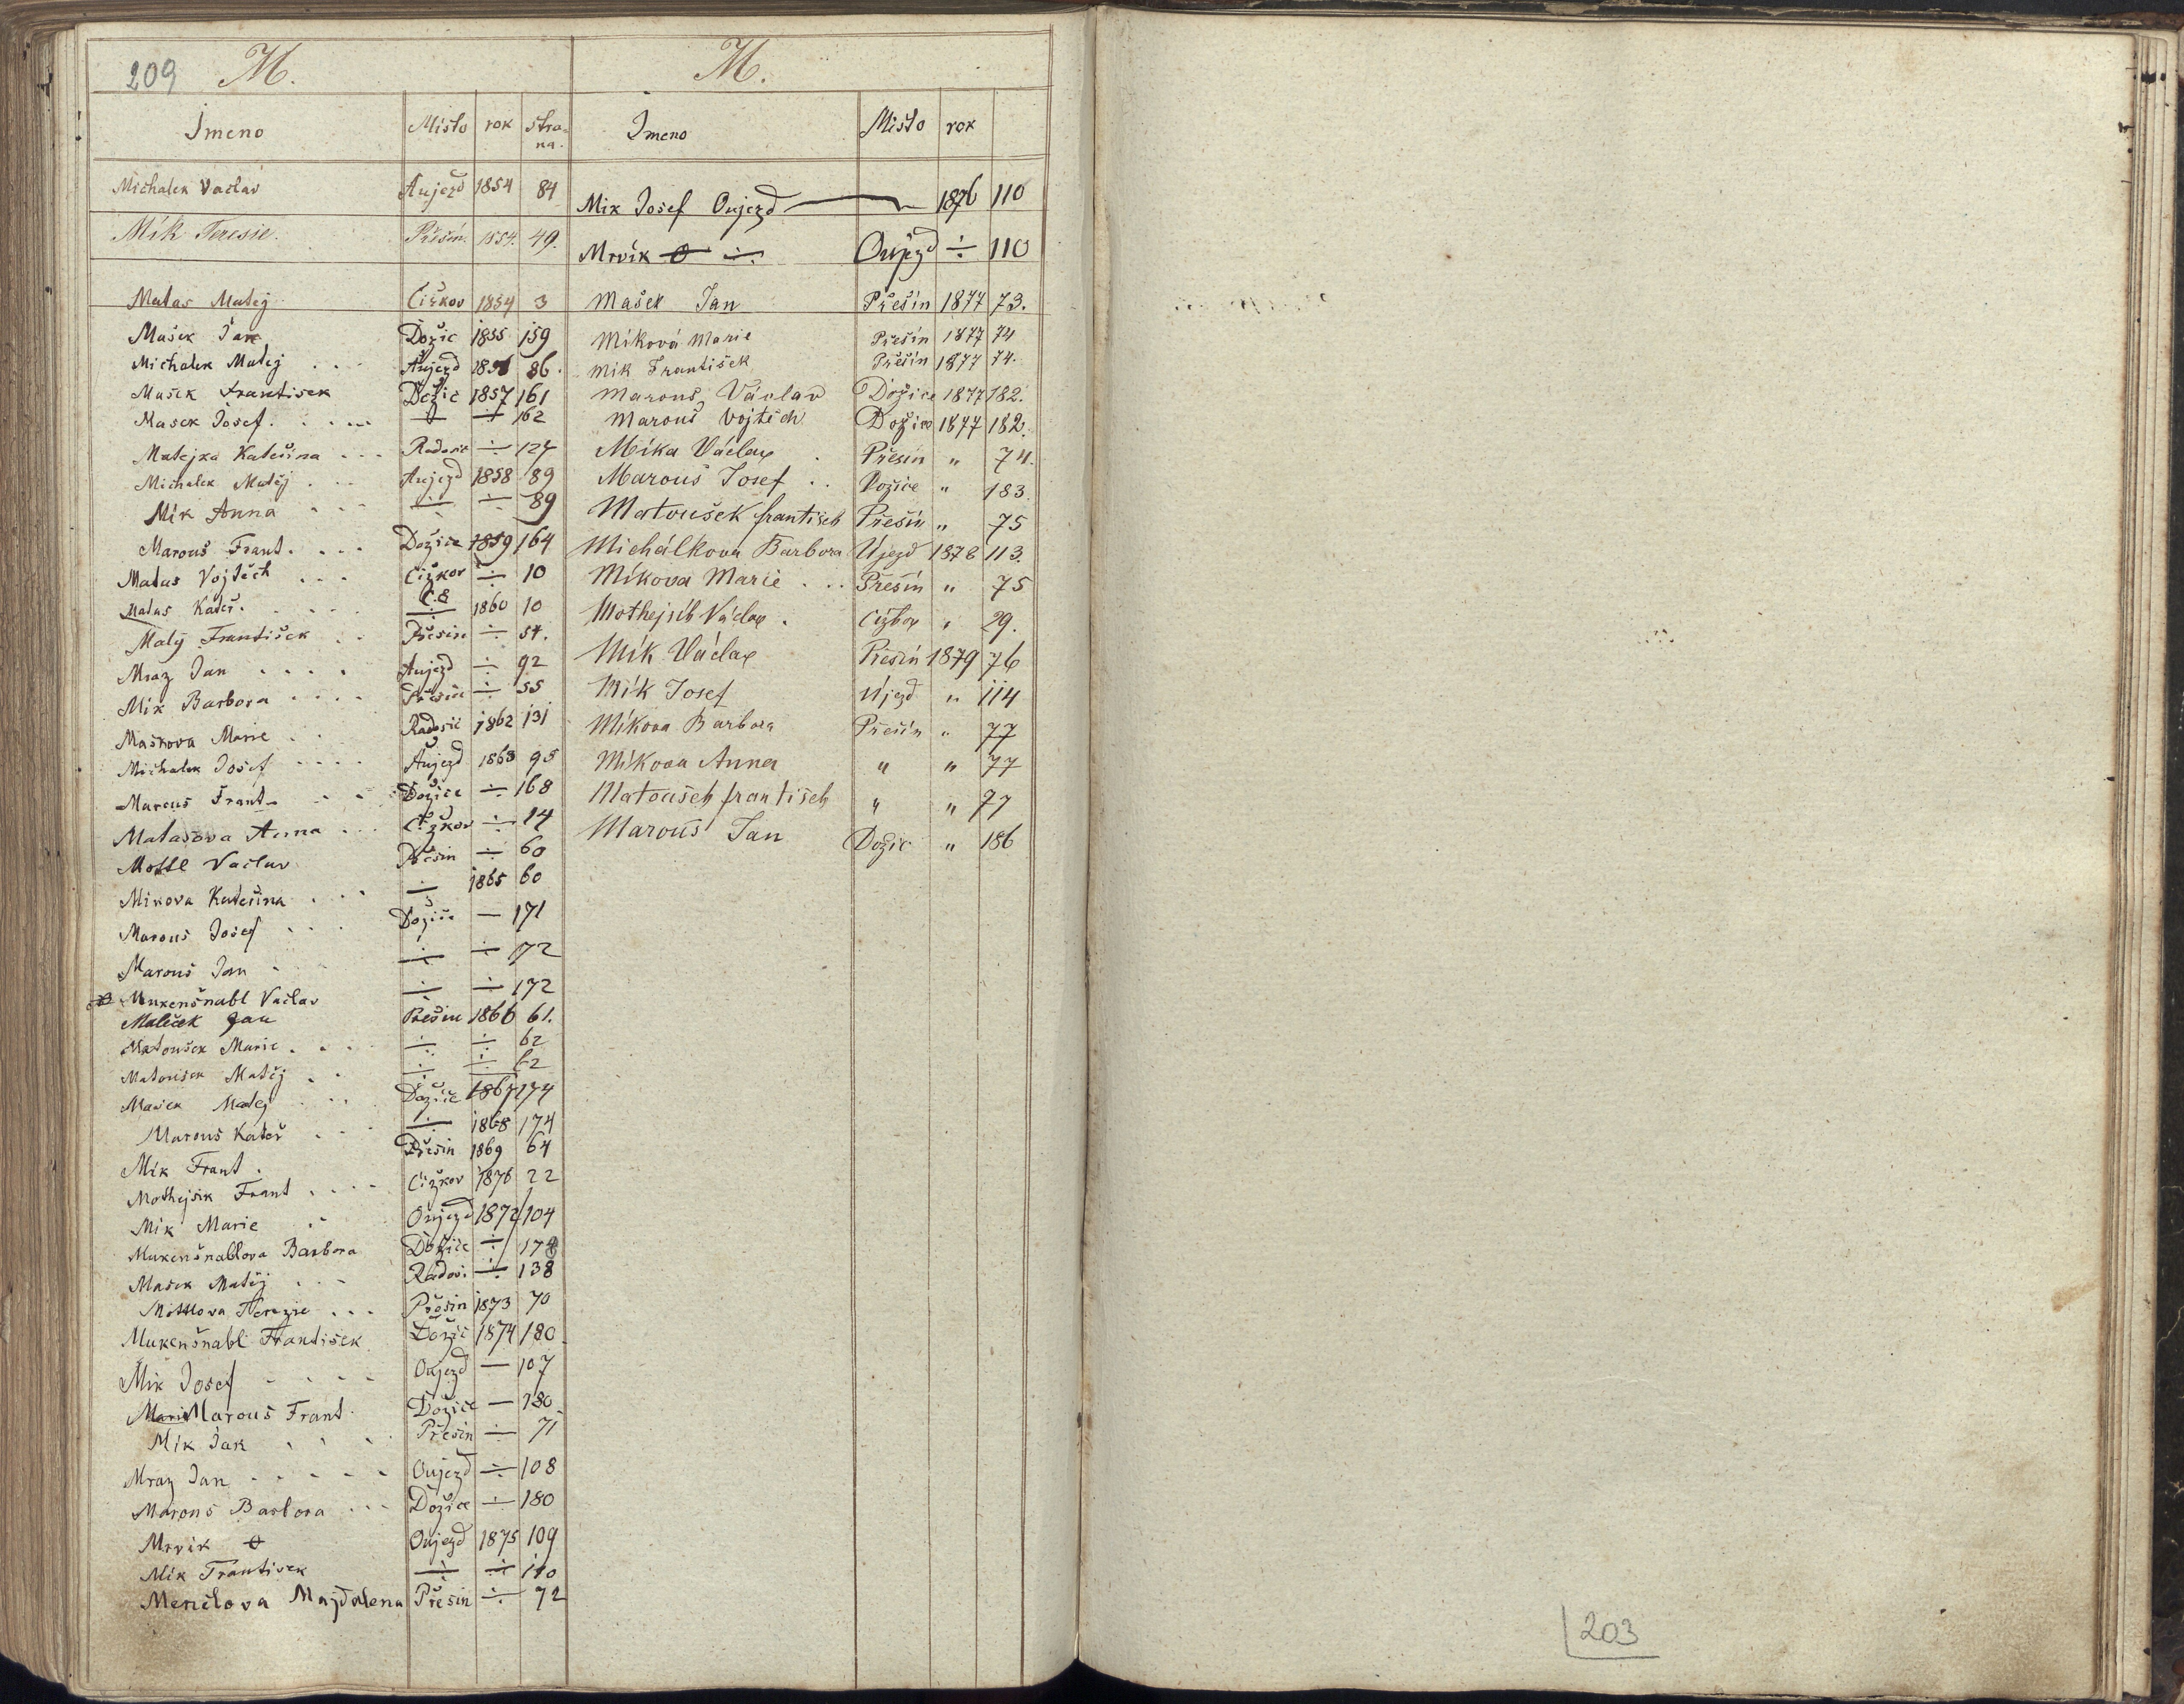 209 M.
Jmeno Místo rok stra-
na.
Michalek Vaclav Aujezd 1854 84
Mík Teresie. Přešín. 1854. 49.
Matas Matej Čižkov 1854 3
Mašek Jan Dožic 1855 159
Michalek Matej . . . Aujezd 1856 86.
Mašek Frantisek Dožic 1857 161
Masek Josef. . . . . ÷ ÷ 162
Matejka Kateřina . . . Radosic ÷ 127
Michalek Matěj . . . Aujezd 1858 89
Mik Anna . . . ÷ ÷ 89
Marouš Frant. . . . Dožice 1859 164
Matas Vojtěch . . . Čižkov ÷ 10
Matas Kateř. . . . . ÷ 1860 10
Malý František . . Přesin ÷ 54.
Mraz Jan . . . . Aujezd ÷ 92
Mik Barbora . . . . Přesin ÷ 55
Maskova Marie . . Radosic 1862 131
Michalek Josef . . . . Aujezd 1863 95
Marous Frant. . . Dožice ÷ 168
Matasova Anna . . . Čižkov ÷ 14
Mottl Vaclav Přesin ÷ 60
Mikova Kateřina . . . ÷ 1865 60
Marous Josef . . . Dožice — 171
Marouš Jan . . ÷ ÷ 172
Mukenšnabl Vaclav ÷ ÷ 172
Maleček Jan Přešin 1866 61.
Matoušek Marie . . . ÷ ÷ 62
Matousek Matěj . . ÷ ÷ 62
Mašek Matej . . . Dožice 1867 174
Marous Kateř . . . ÷ 1868 174
Mik Frant. Přesin 1869 64
Mothejsik Frant . . . . Čižkov 1876 22
Mik Marie . . Oujezd 1872 104
Mukenšnablova Barbora Dožice ÷ 178
Mašek Matěj . . . Radosi ÷ 138
Mottlova Terezie . . . Přesin 1873 70
Mukenšnabl František Dožic 1874 180
Mik Josef . . . . Oujezd — 107
Marous Frant. Dožice — 180
Mik Jak . . . Přesin ÷ 71
Mraz Jan . . . . . Oujezd ÷ 108
Marous Barbora . . . Dožice ÷ 180
Mrvik Oujezd 1875 109
Mik Frantisek ÷ ÷ 110
Menclova Majdalena Přesin ÷ 72
M.
Jmeno Místo rok
Mik Josef Oujezd — 1876 110
Mrvík ÷ Oujezd ÷ 110
Mašek Jan Přešín 1877 73.
Míková Marie Přešín 1877 74
Mik František Přešín 1877 74.
Marouš Václav Dožice 1877 182.
Marouš Vojtěch Dožice 1877 182.
Míka Václav . Přesin " 74.
Marouš Josef . . Dožice " 183.
Matoušek František Přešín " 75
Michálkova Barbora Újezd 1878 113.
Míkova Marie . . . Přešín " 75
Mothejsík Václav . Čížkov " 29.
Mík Václav Přešín 1879 76
Mík Josef Újezd " 114
Míkova Barbora Přešín " 77
Míkova Anna " " 77
Matoušek František " " 77
Marouš Jan Dožic " 186
203